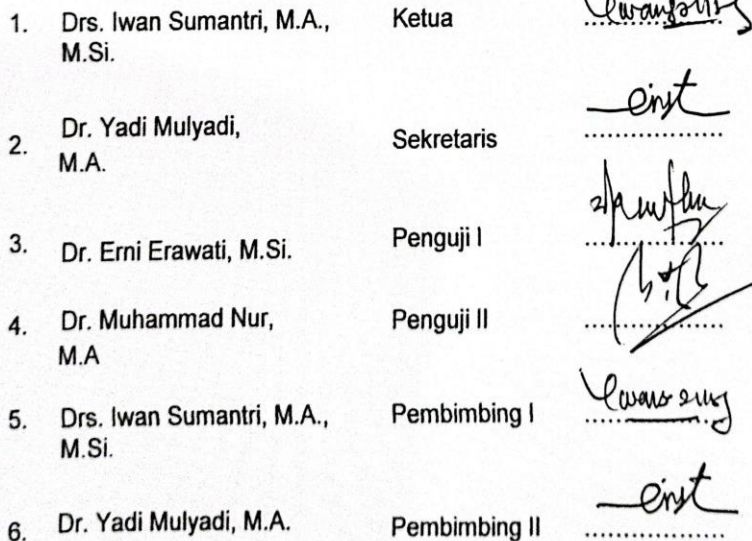 1. Drs. Iwan Sumantri, M.A., Ketua
M.Si.
2. Dr. Yadi Mulyadi, Sekretaris
M.A.
3. Dr. Erni Erawati, M.Si. Penguji I
4. Dr. Muhammad Nur, Penguji II
M.A
5. Drs. Iwan Sumantri, M.A., Pembimbing I
M.Si.
6. Dr. Yadi Mulyadi, M.A. Pembimbing II